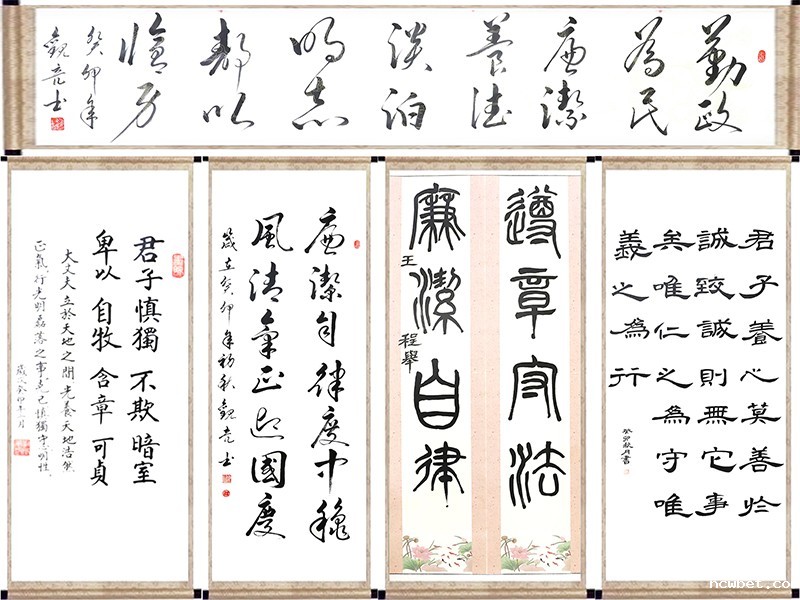 勤政為民廉潔養德淡泊明志靜以
癸卯年
觀亮书
君子慎獨 不欺暗室
卑以自牧 含章可貞
大丈夫立於天地之間 養天地浩然
正氣行光明磊落之事克己慎獨守心明性
廉潔自律度中穐
風清氣正迎國慶
歲在癸卯年初秋觀亮书
遵章守法
廉潔自律
王程舉
君子養心莫善於
誠致誠則無它事
矣唯仁之為守唯
義之為行
癸卯秋月書
ncwbet.co